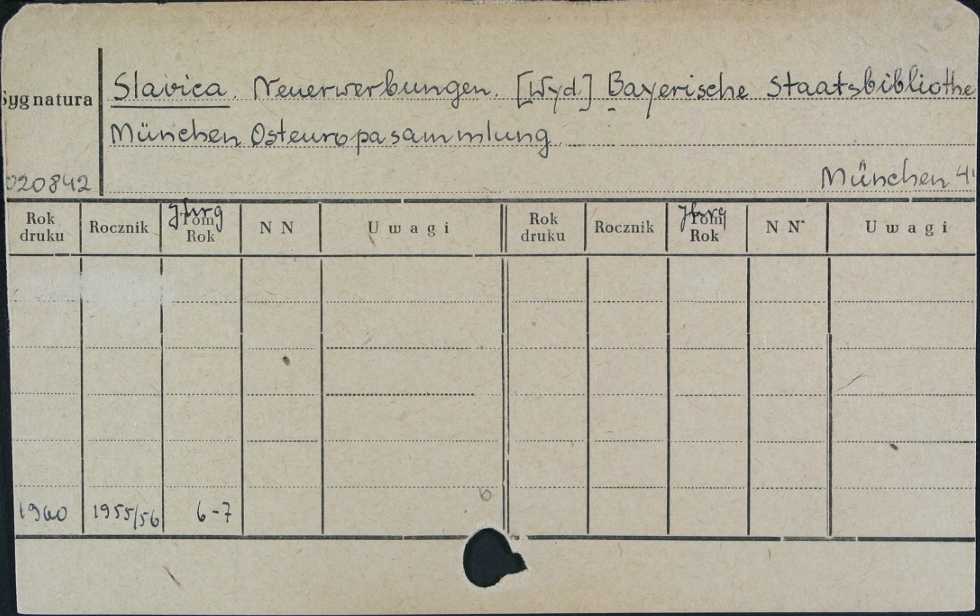 Slavica. Neuerwerbungen. [Wyd.] Bayerische Staatsbibliothe
Sygnatura
München Osteuropasammlung
020842
München 4
Rok druku Rocznik Jhrg Tom Rok N N Uwagi Rok druku Rocznik Jhrg Tom Rok N N Uwagi
1960 1955/56 6-7
6